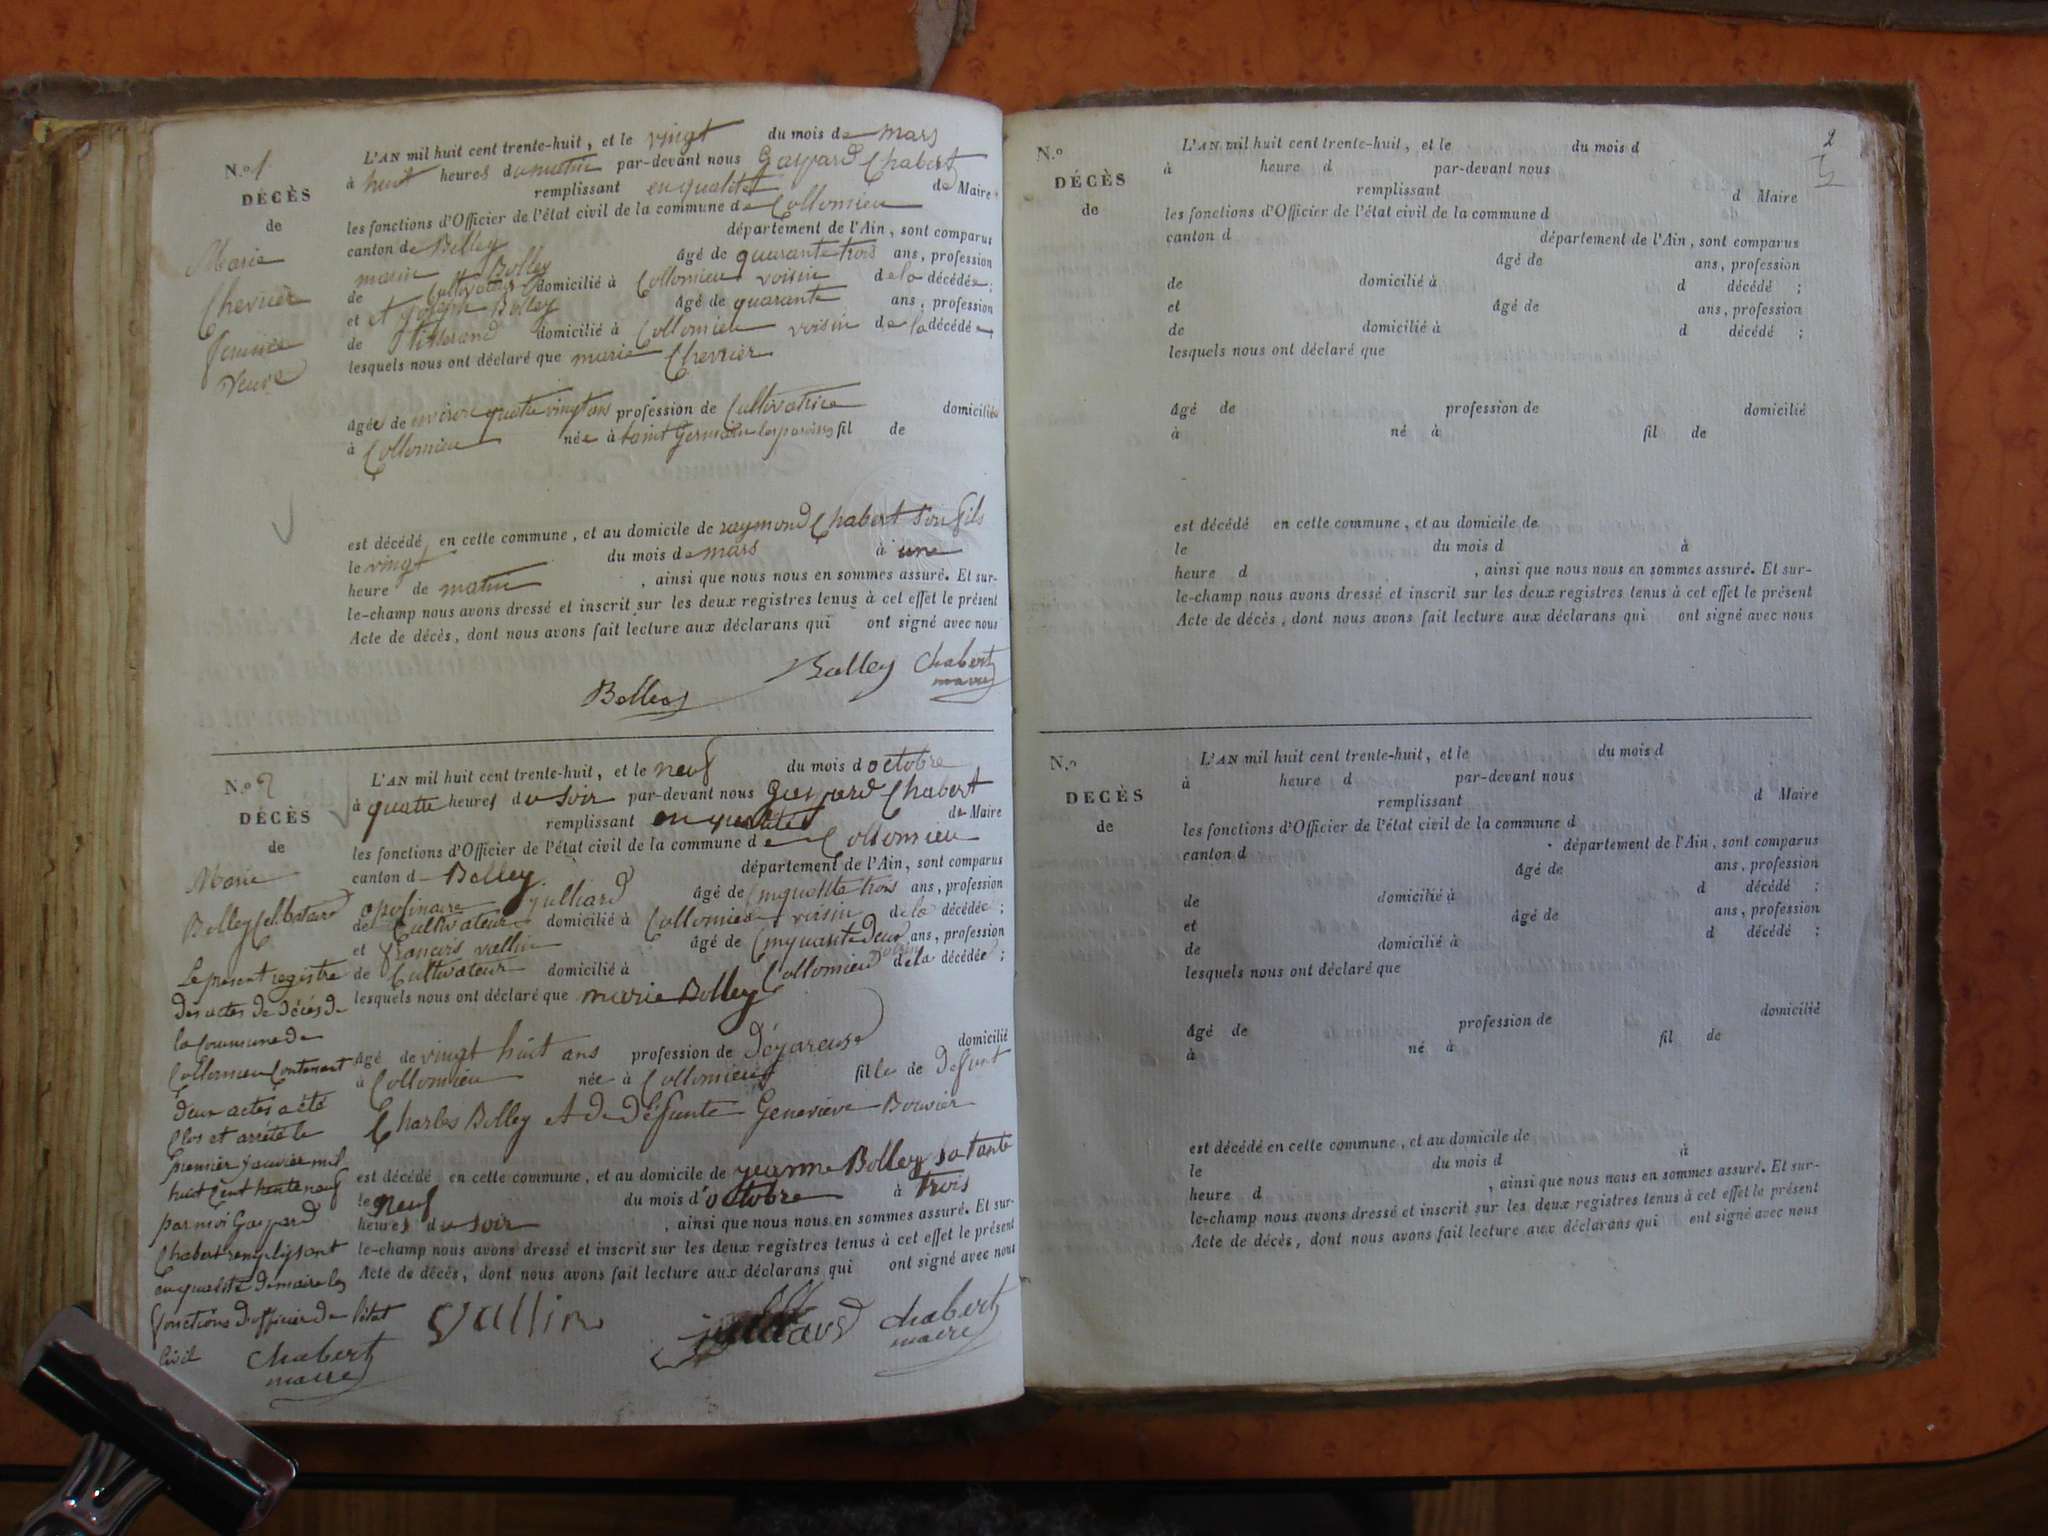 N.o 1
DÉCÈS
de
Marie
Chevrier
femme
veuve
L'AN mil huit cent trente-huit, et le vingt du mois de mars
à huit heures du matin par-devant nous Gaspard Chabert
remplissant en qualité de Maire
les fonctions d'Officier de l'état civil de la commune de Collomieu
canton de Belley département de l'Ain, sont comparus
marin Bolley âgé de quarante trois ans, profession
de Cultivateur domicilié à Collomieu voisin de la décédée;
et et joseph Bolley âgé de quarante ans, profession
de tisserand domicilié à Collomieu voisin de la décédée
lesquels nous ont déclaré que marie Chevrier
âgée de environ quatre vingt ans profession de Cultivatrice domiciliée
à Collomieu née à saint Germain les paroisses fil de
est décédé en cette commune, et au domicile de raymond Chabert son fils
le vingt du mois de mars à une
heure de matin, ainsi que nous nous en sommes assuré. Et sur-
le-champ nous avons dressé et inscrit sur les deux registres tenus à cet effet le présent
Acte de décès, dont nous avons fait lecture aux déclarans qui ont signé avec nous
Bolley Bolley Chabert
maire
N.o 2
DÉCÈS
de
Marie
Bolley Celibataire
L'AN mil huit cent trente-huit, et le neuf du mois d octobre
à quatre heures du soir par-devant nous Gaspard Chabert
remplissant en qualité de Maire
les fonctions d'Officier de l'état civil de la commune de Collomieu
canton d Belley département de l'Ain, sont comparus
apolinaire julliard âgé de Cinquante trois ans, profession
de Cultivateur domicilié à Collomieu voisin de la décédée;
et francois vallin âgé de Cinquante deux ans, profession
de Cultivateur domicilié à Collomieu voisin de la décédée;
lesquels nous ont déclaré que marie Bolley
âgé de vingt huit ans profession de domicilié
à Collomieu née à Collomieu fille de defunt
Charles Bolley et de défunte Geneviève Bouvier
est décédé en cette commune, et au domicile de jeanne Bolley sa tante
le neuf du mois d'octobre à trois
heures du soir, ainsi que nous nous en sommes assuré. Et sur-
le-champ nous avons dressé et inscrit sur les deux registres tenus à cet effet le présent
Acte de décès, dont nous avons fait lecture aux déclarans qui ont signé avec nous
vallin julliard Chabert
maire
Le present registre
des actes de décés de
la Commune de
Collomieu Contenant
deux actes a été
Clos et arrété le
premier janvier mil
huit Cent trente neuf
par moi Gaspard
Chabert remplissant
en qualité de maire les
fonctions d'officier de l'état
Civil Chabert
maire
2
N.o
DÉCÈS
de
L'AN mil huit cent trente-huit, et le du mois d
à heure d par-devant nous
remplissant d Maire
les fonctions d'Officier de l'état civil de la commune d
canton d département de l'Ain, sont comparus
âgé de ans, profession
de domicilié à d décédé ;
et âgé de ans, profession
de domicilié à d décédé ;
lesquels nous ont déclaré que
âgé de profession de domicilié
à né à fil de
est décédé en cette commune, et au domicile de
le du mois d à
heure d , ainsi que nous nous en sommes assuré. Et sur-
le-champ nous avons dressé et inscrit sur les deux registres tenus à cet effet le présent
Acte de décès, dont nous avons fait lecture aux déclarans qui ont signé avec nous
N.o
DECÈS
de
L'AN mil huit cent trente-huit, et le du mois d
à heure d par-devant nous
remplissant d Maire
les fonctions d'Officier de l'état civil de la commune d
canton d département de l'Ain, sont comparus
âgé de ans, profession
de domicilié à d décédé ;
et âgé de ans, profession
de domicilié à d décédé ;
lesquels nous ont déclaré que
âgé de profession de domicilié
à né à fil de
est décédé en cette commune, et au domicile de
le du mois d à
heure d , ainsi que nous nous en sommes assuré. Et sur-
le-champ nous avons dressé et inscrit sur les deux registres tenus à cet effet le présent
Acte de décès, dont nous avons fait lecture aux déclarans qui ont signé avec nous